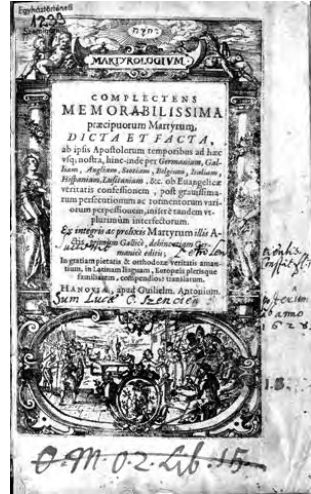 Egyháztörténeti
1239
Szeminár
יהוה
MARTYROLOGIVM,
COMPLECTENS
MEMORABILISSIMA
præcipuorum Martyrum,
DICTA ET FACTA,
ab ipsis Apostolorum temporibus ad hæc
vsq; nostra, hinc-inde per Germaniam, Gal-
liam, Angliam, Scotiam, Belgium, Italiam,
Hispaniam, Lusitaniam, &c. ob Euangelicæ
veritatis confessionem, post grauissima-
rum persecutionum ac tormentorum vari-
orum perpessionem, miserè tandem vt
plurimùm intersectorum.
Ex integris ac prolixis Martyrum illis A-
Gallicè, dehinc etiam Ger-
manicè editis,
In gratiam pietatis & orthodoxæ veritatis aman-
tium, in Latinam linguam, Europæis plerisque
familiarem, compendiosè translatum.
HANOVIÆ, apud Guilielm. Antonium.
Sum Lucæ C. Szenciey
ab anno
1628
I.B.
O. M. O 2. Lib. 15.